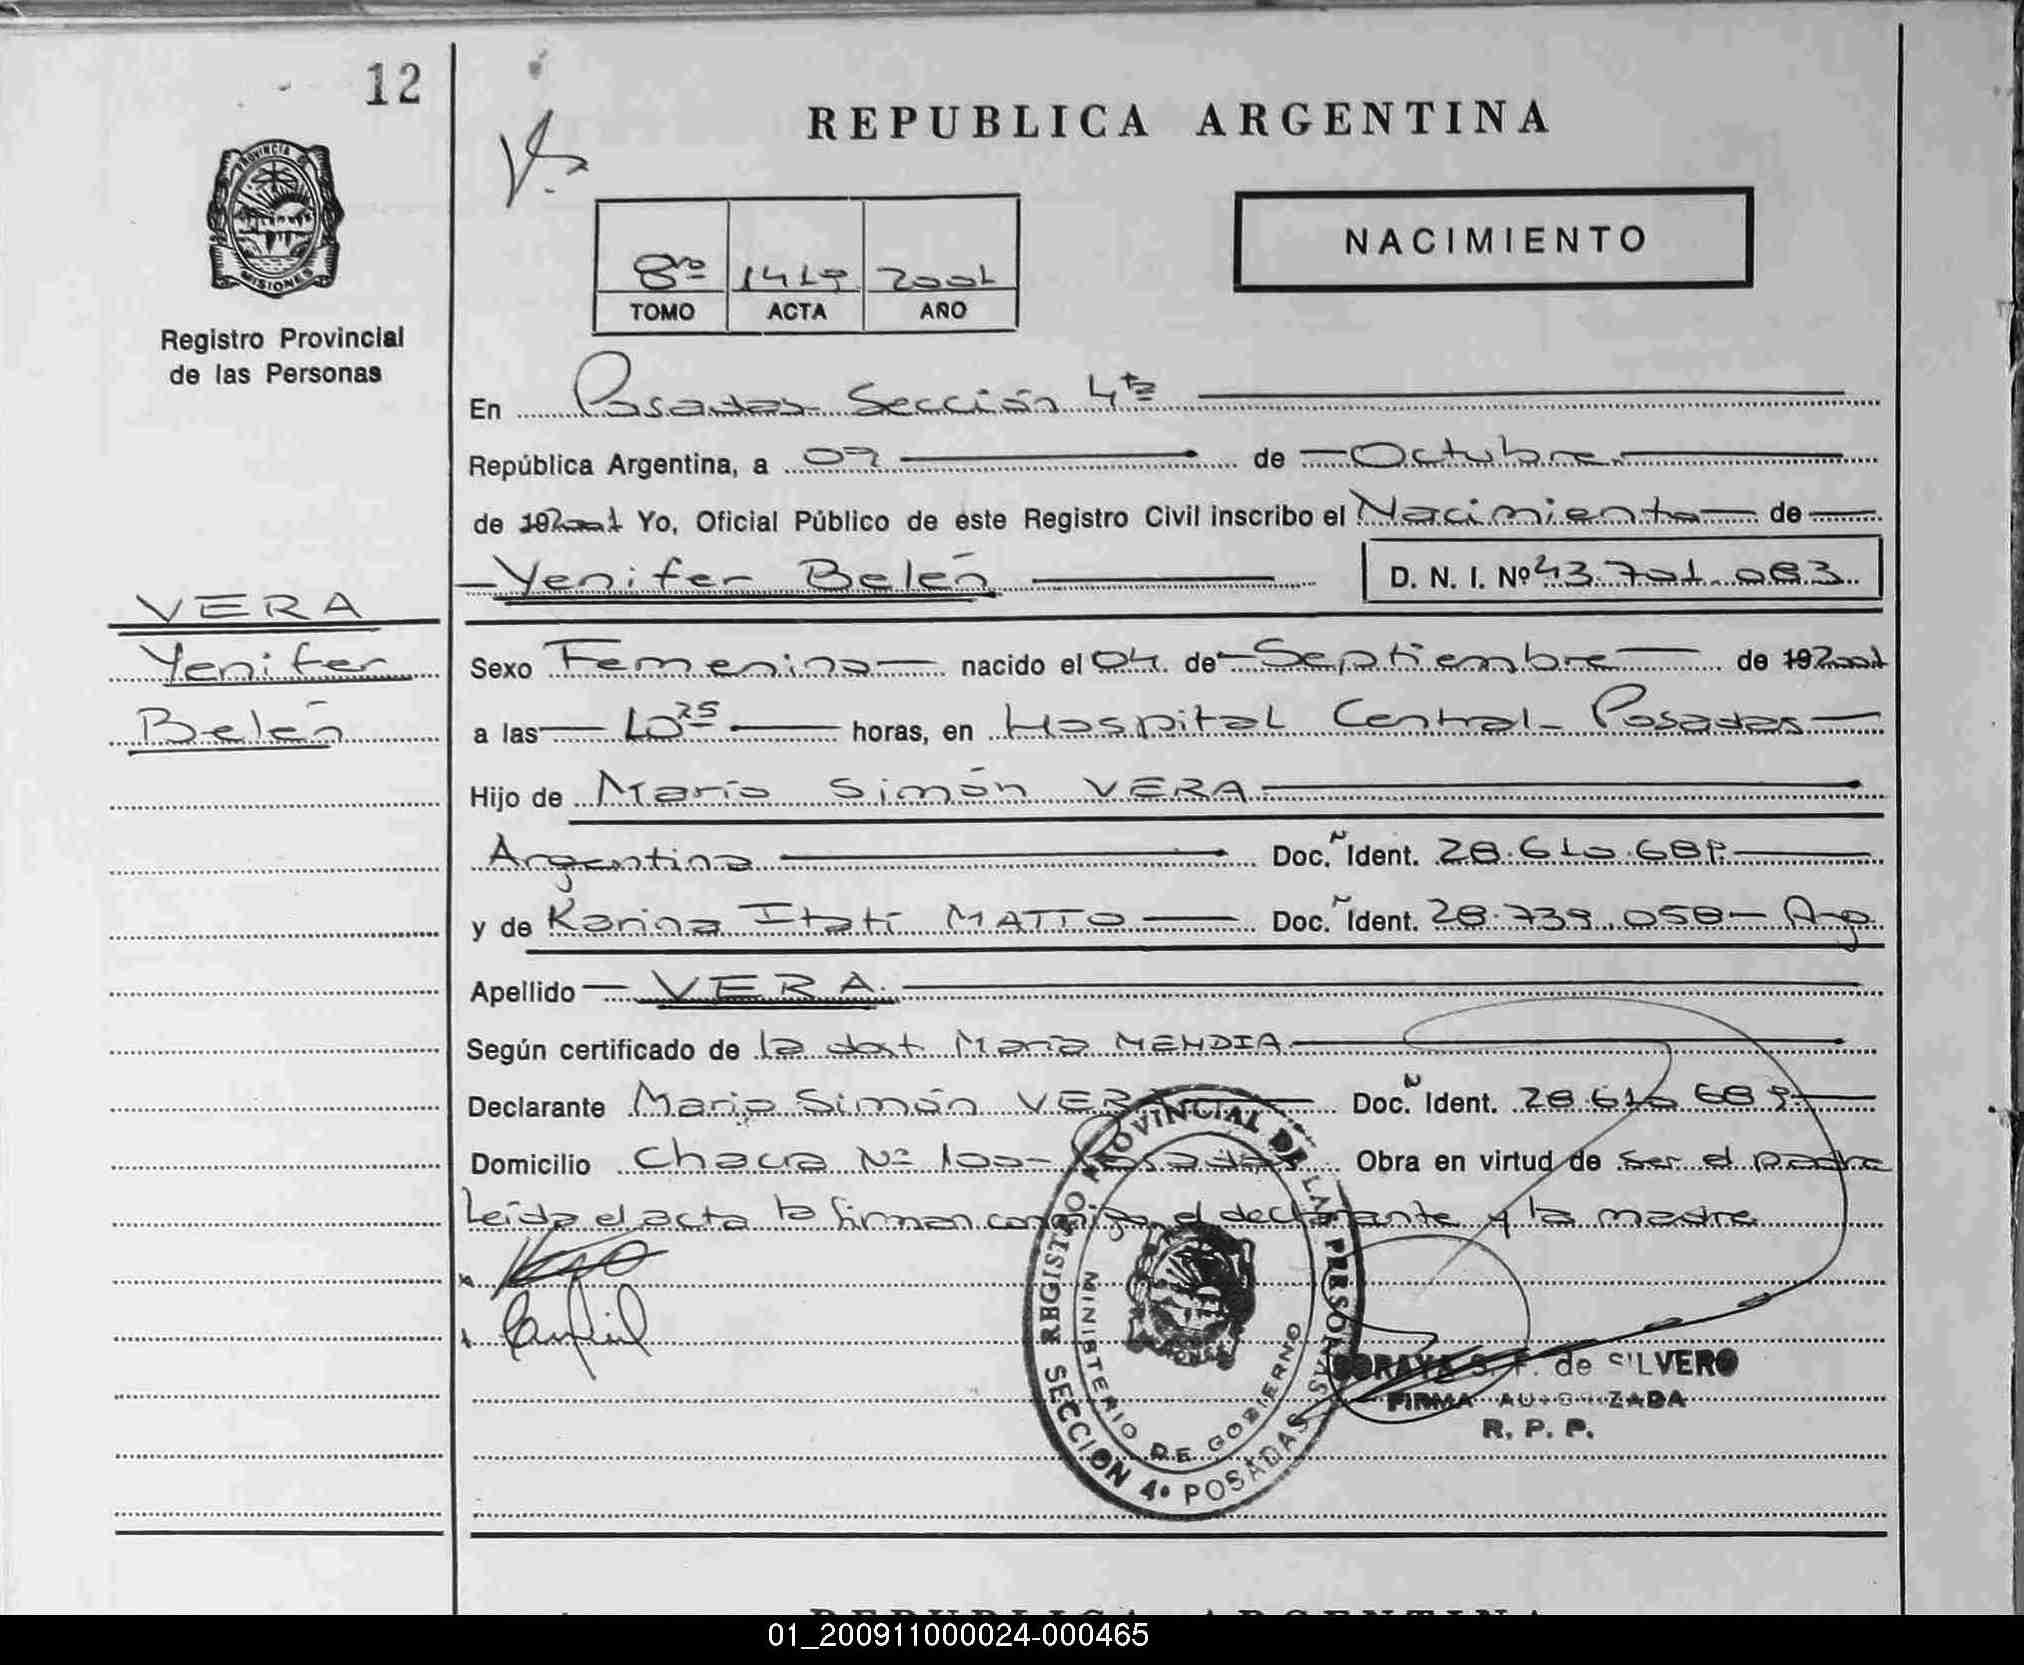 12
PROVINCIA DE
MISIONES
Registro Provincial
de las Personas
VERA
Yenifer
Belén
REPUBLICA ARGENTINA
NACIMIENTO
8vo 1419 2001
TOMO ACTA AÑO
En Posadas Sección 4ta
República Argentina, a 02 de Octubre
de 192001 Yo, Oficial Público de este Registro Civil inscribo el Nacimiento de
Yenifer Belén D. N. I. Nº 43.701.083
Sexo Femenino nacido el 04 de Septiembre de 192001
a las 10 25 horas, en Hospital Central - Posadas
Hijo de Mario Simón VERA
Argentino Doc. Ident. 28.610.689
y de Karina Itatí MATTO Doc. Ident. 28.739.058 - Arg.
Apellido VERA.
Según certificado de la doct. María MENDIA
Declarante Mario Simón VERA Doc. Ident. 28.610.689
Domicilio Chacra Nº 100 - Posadas Obra en virtud de ser el padre
Leída el acta la firman conmigo, el declarante y la madre
REGISTRO PROVINCIAL DE LAS PERSONAS
MINISTERIO DE GOBIERNO
SECCION 4º POSADAS
SORAYA S. F. de SILVERO
FIRMA AUTORIZADA
R. P. P.
REPUBLICA ARGENTINA
01_200911000024-000465